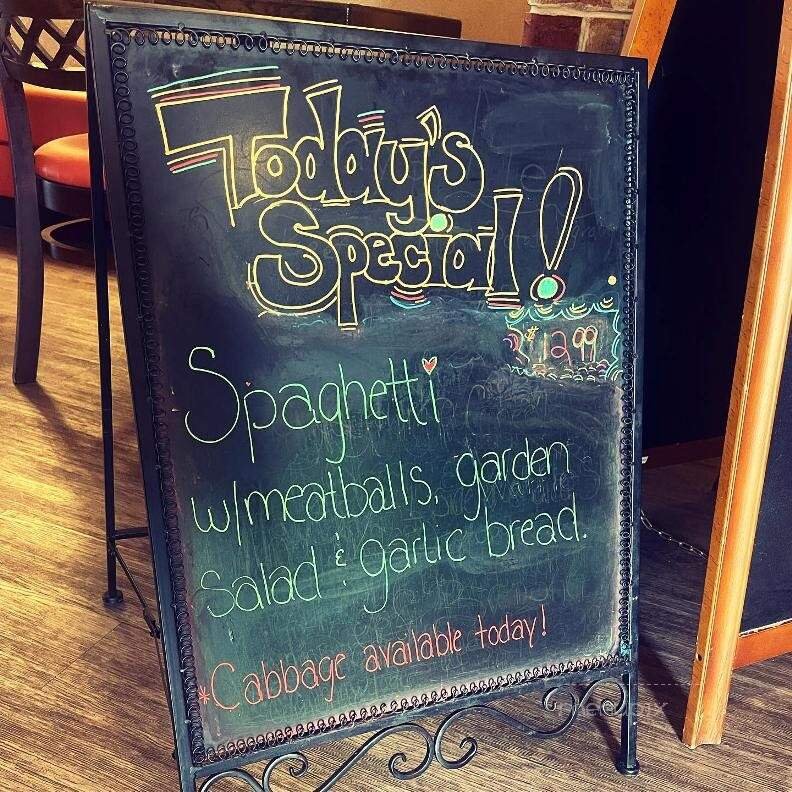 Today's
Special!
$12.99
Spaghetti
w/meatballs, garden
Salad & garlic bread.
*Cabbage available today!